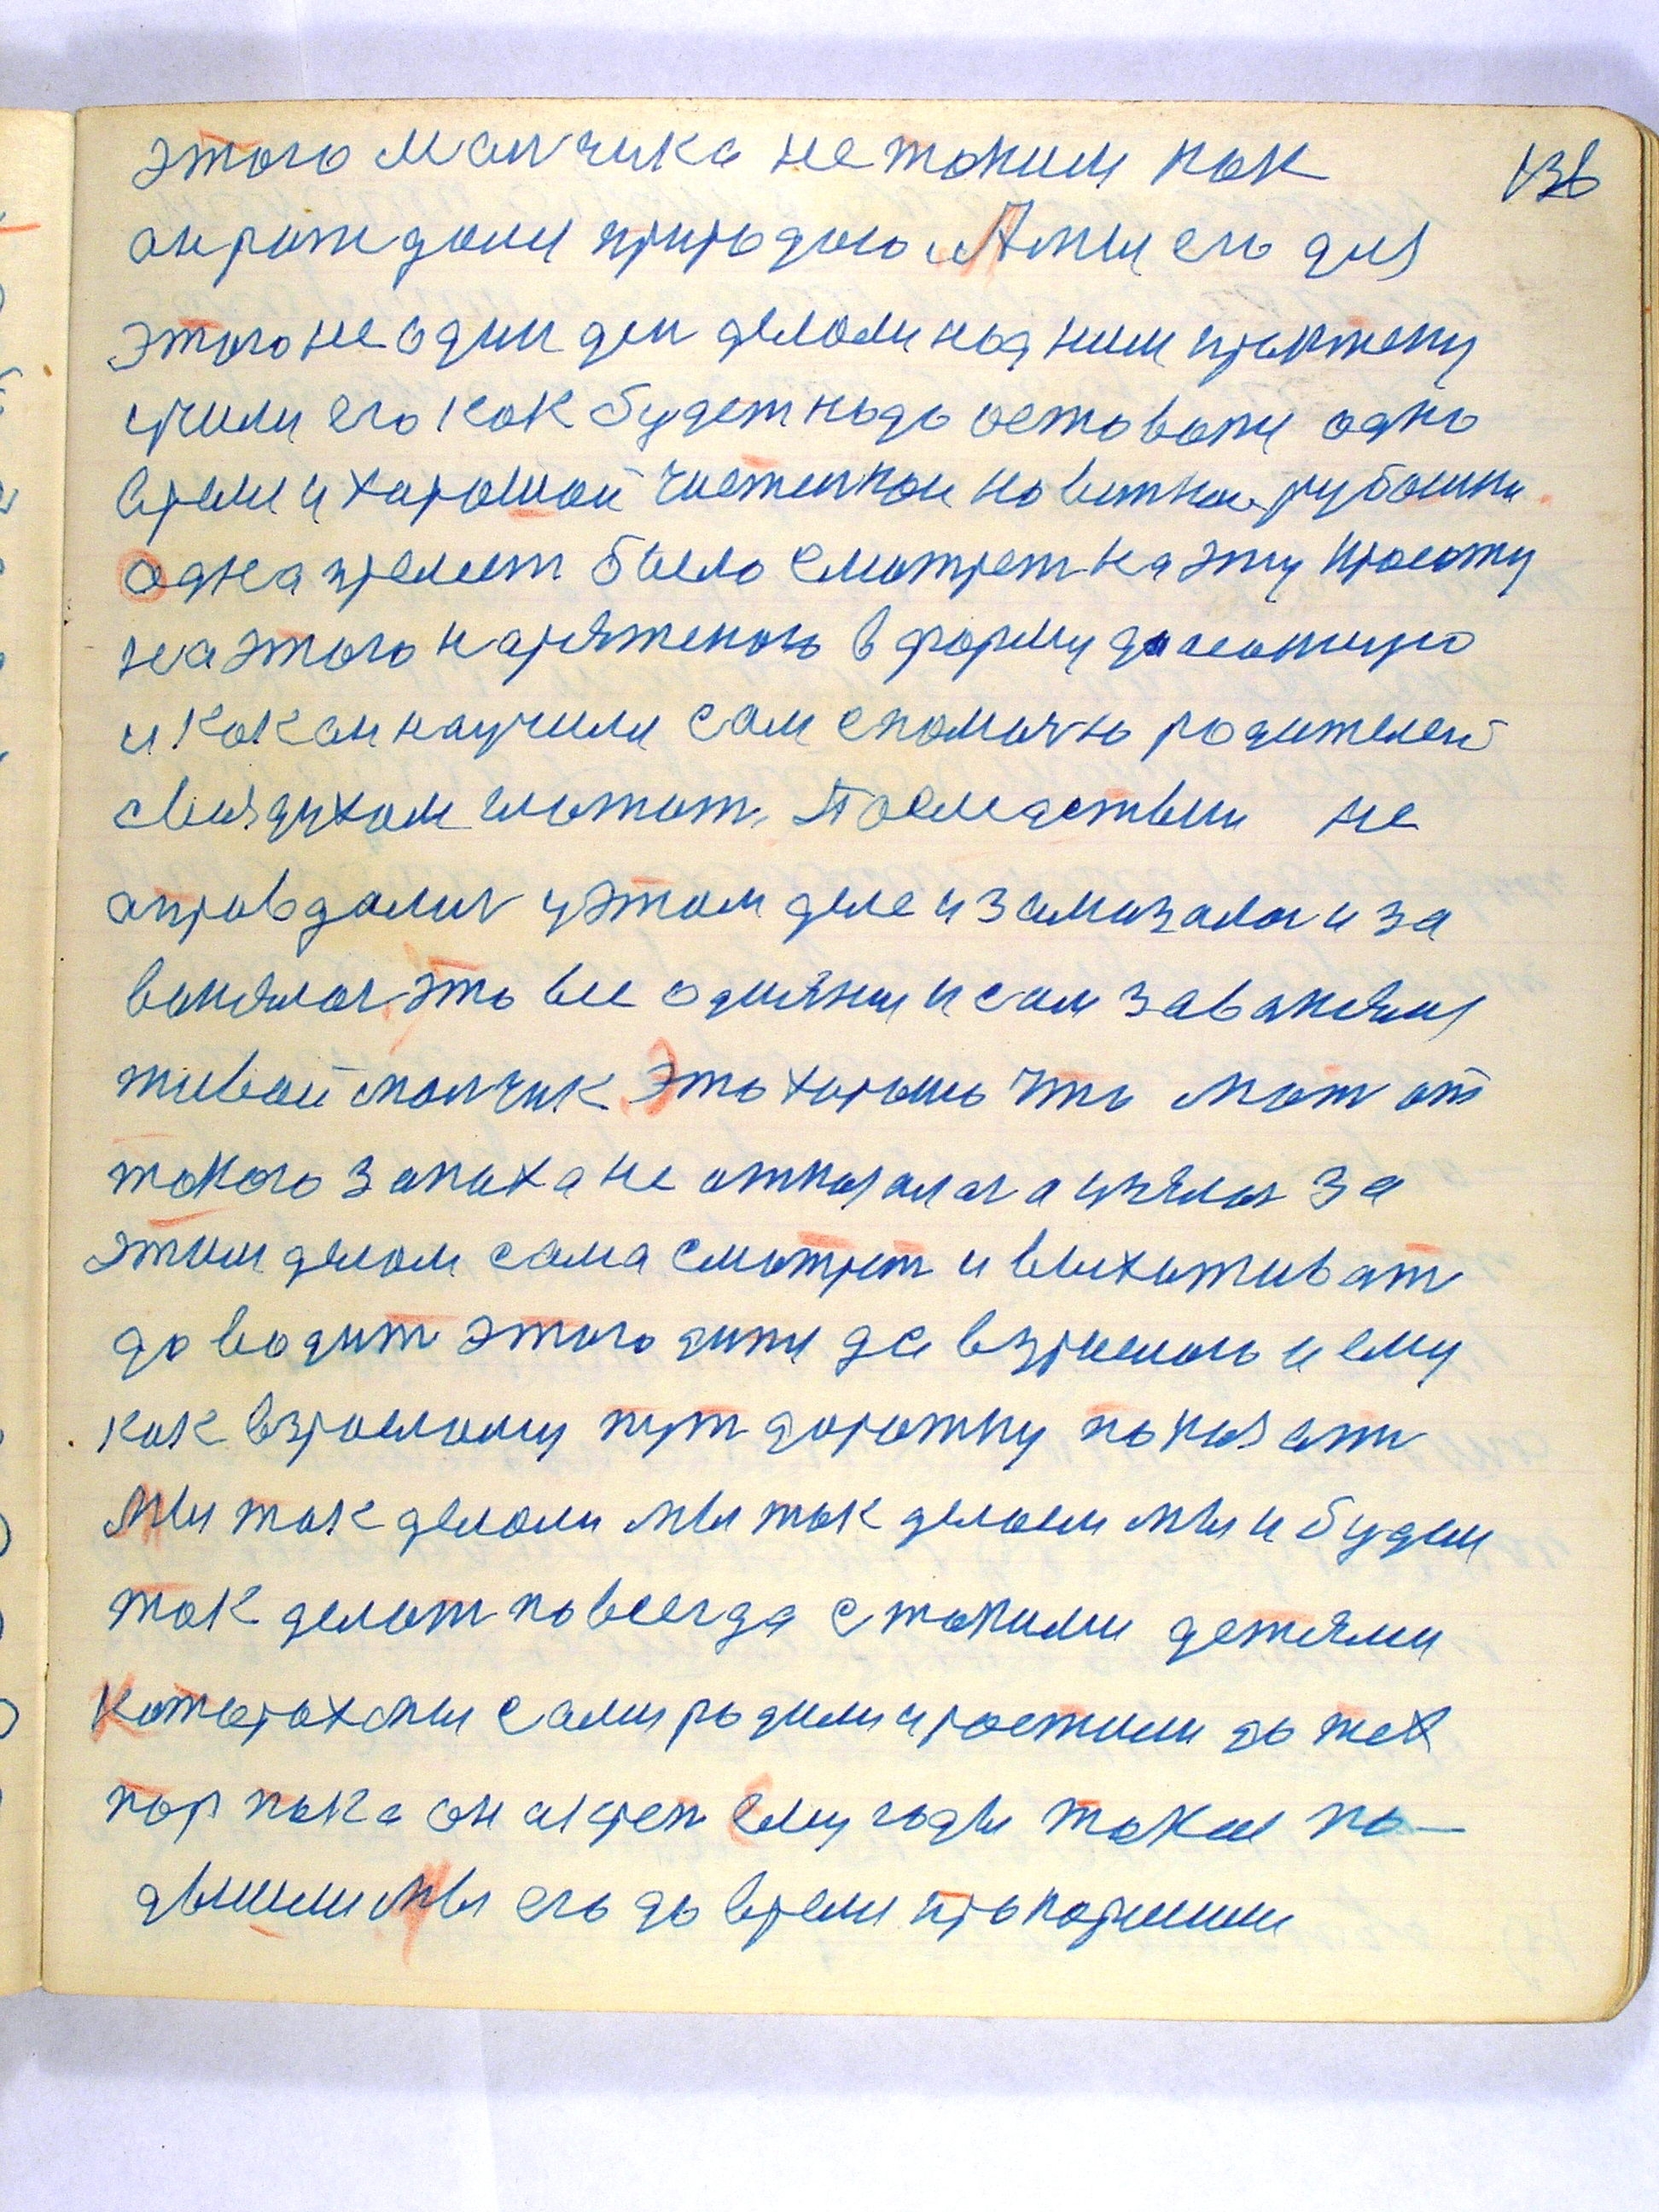 этого малчика не таким как 136
он рождали природаю. А мы его для
этого не один ден делали над ним прыктику
учили его как будет надо оставатц одно
время и харошой чистинкои новитнои рубошки
одна прелест было смотрет на эту красоту
на этого наряженого в форму дачаюшую
и как он научили сам спомочю родителей
своя духом глотат. Последствии не
оправдалис у этом деле измазалас и за
ванялас это все одияния и сам заванялся
живой малчик Это харашо что мат от
такого запаха не отказалас а взялас за
этим делом сама смотрет и выхаживат
доводит этого дитя до взрослого и ему
как взрослому пут дорожку показат
Мы так делали мы так делаем мы и будем
так делат повсегда с такими детями
каторах мы сами родили и ростили до тех
пор пока он акреп Ему годы такие по-
двишли Мы его до время прокормили